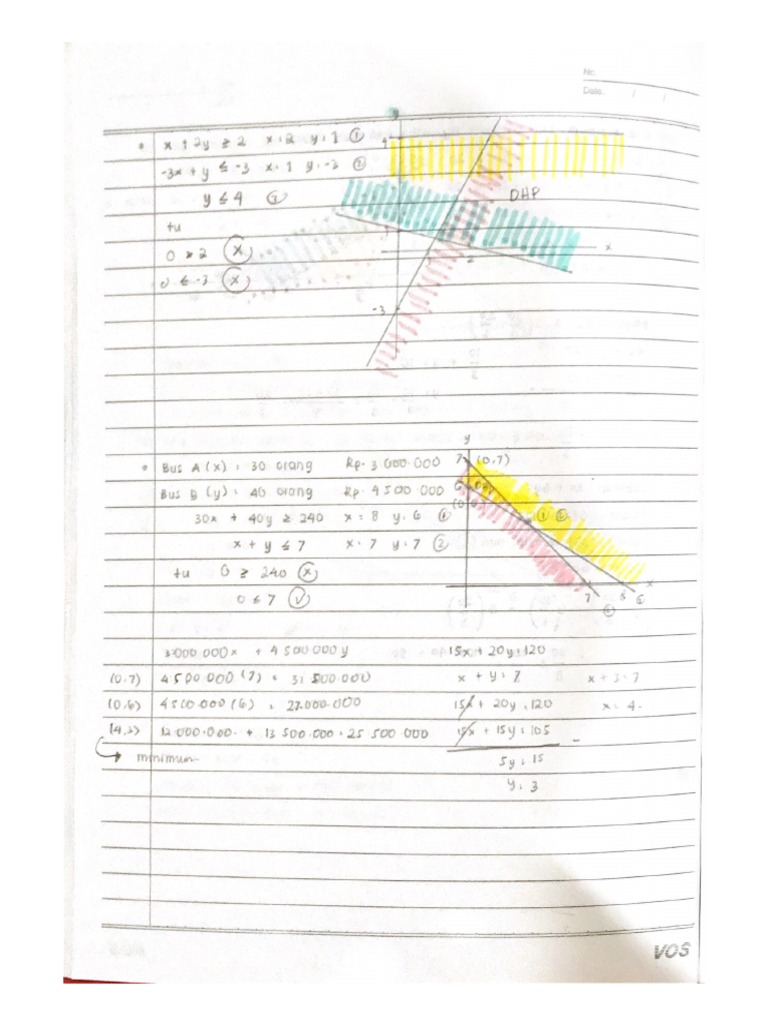 No.
Date. / /
• x + 2y ≥ 2 x = 2 y = 1 ①
-3x + y ≤ -3 x = 1 y = -3 ②
y ≤ 4 ③
tu
0 ≥ 2 (x)
0 ≤ -3 (x)
4
DHP
1
2
x
-3
• Bus A (x) : 30 orang Rp. 3 000.000
Bus B (y) : 40 orang Rp. 4 500 000
30x + 40y ≥ 240 x = 8 y = 6 ①
x + y ≤ 7 x = 7 y = 7 ②
tu 0 ≥ 240 (x)
0 ≤ 7 (√)
y
7 (0,7)
6 DHP
x
7 8
3.000.000x + 4 500 000y 15x + 20y = 120
(0,7) 4.500 000 (7) = 31 500.000 x + y = 7 x + 3 = 7
(0,6) 4500.000 (6) = 27.000.000 15x + 20y = 120 x = 4
(4,3) 12.000.000 + 13 500.000 = 25 500 000 15x + 15y = 105 -
→ minimum 5y = 15
y = 3
VOS